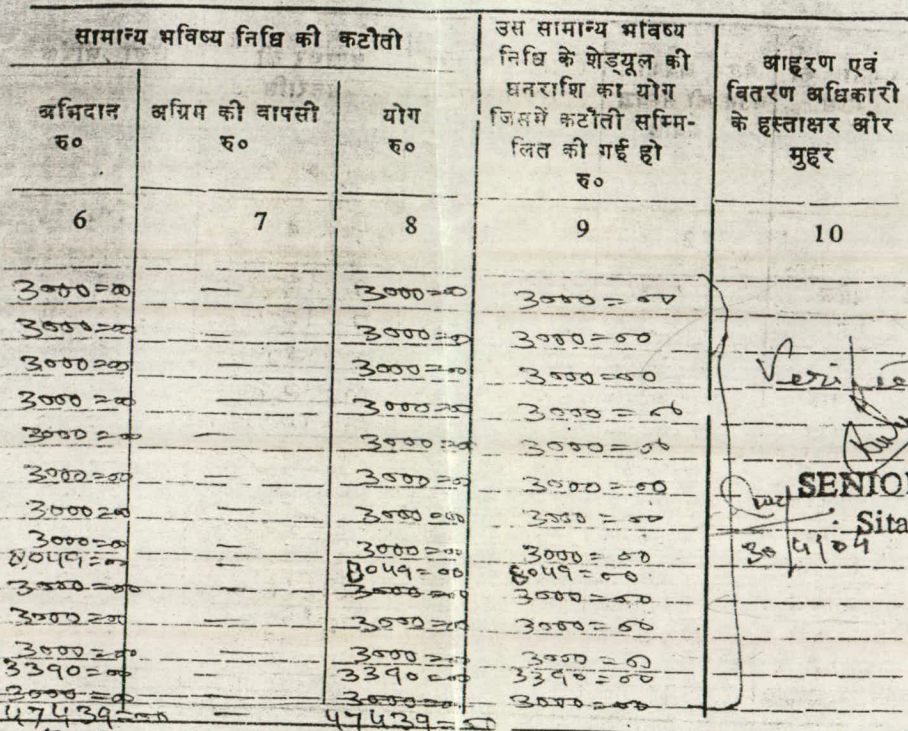 सामान्य भविष्य निधि की कटौती
अभिदान
रु०
अग्रिम की वापसी
रु०
योग
रु०
उस सामान्य भविष्य
निधि के शेड्यूल की
धनराशि का योग
जिसमें कटौती सम्मि-
लित की गई हो
रु०
आहरण एवं
वितरण अधिकारी
के हस्ताक्षर और
मुहर
6 7 8 9 10
3000=00 — 3000=00 3000=00
3000=00 — 3000=00 3000=00
3000=00 — 3000=00 3000=00
3000=00 — 3000=00 3000=00
3000=00 — 3000=00 3000=00
3000=00 — 3000=00 3000=00
3000=00 — 3000=00 3000=00
3000=00 — 3000=00 3000=00
8049=00 — 8049=00 8049=00
3000=00 — 3000=00 3000=00
3000=00 — 3000=00 3000=00
3000=00 — 3000=00 3000=00
3390=00 — 3390=00 3390=00
3000=00 — 3000=00 3000=00
47439=00 — 47439=00
SENIOR
Sita
30/4/04